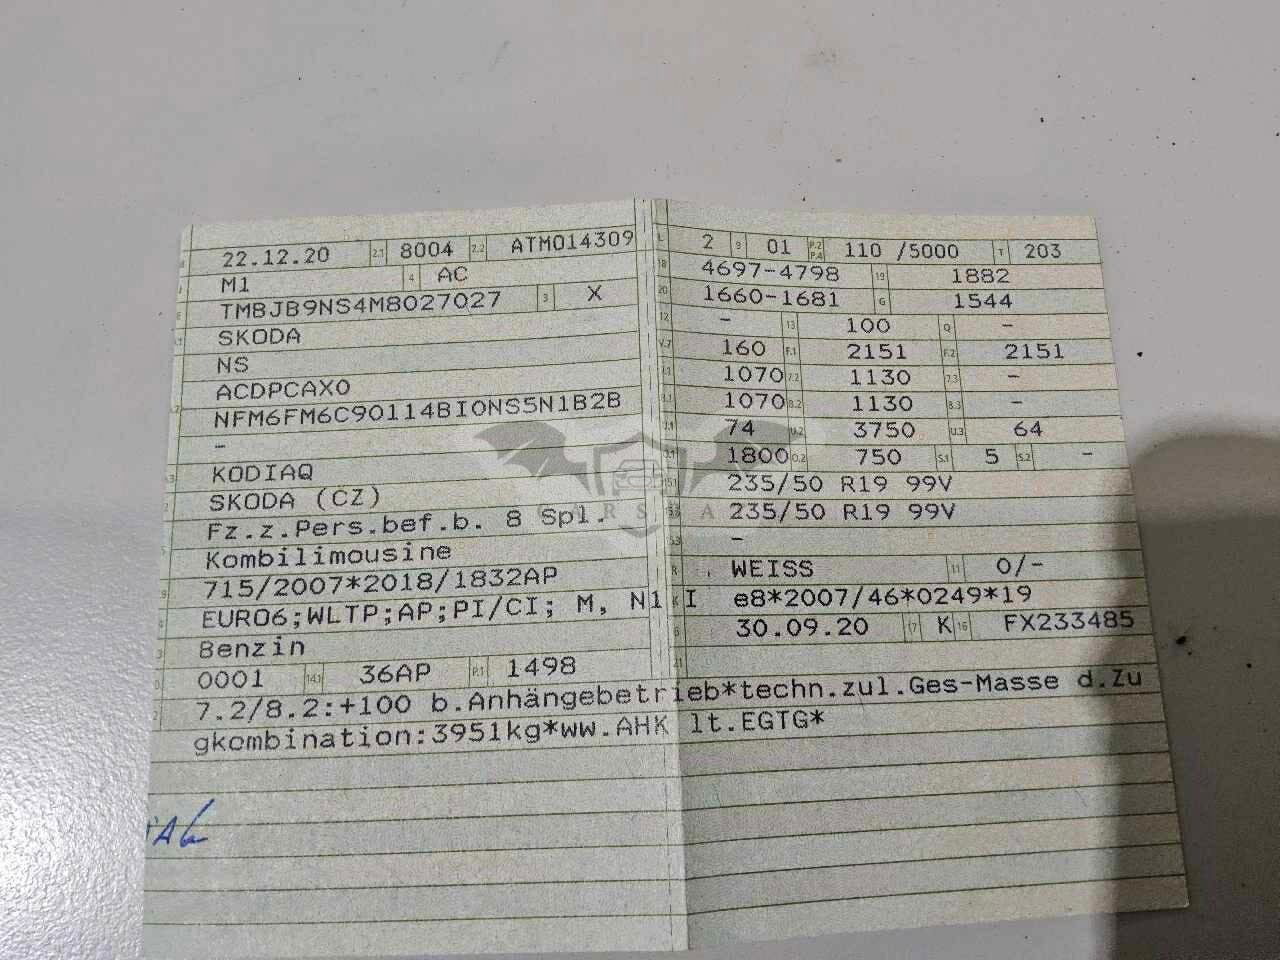 22.12.20 2.1 8004 2.2 ATM014309
M1 4 AC
TMBJB9NS4M8027027 3 X
SKODA
NS
ACDPCAX0
NFM6FM6C90114BIONS5N1B2B
-
KODIAQ
SKODA (CZ)
Fz.z.Pers.bef.b. 8 Spl.
Kombilimousine
715/2007*2018/1832AP
EURO6;WLTP;AP;PI/CI; M, N1 I
Benzin
0001 14.1 36AP P.1 1498
L 2 9 01 P.2 P.4 110 /5000 T 203
18 4697-4798 19 1882
20 1660-1681 G 1544
12 - 13 100 Q -
V.7 160 F.1 2151 F.2 2151
7.1 1070 7.2 1130 7.3 -
8.1 1070 8.2 1130 8.3 -
U.1 74 U.2 3750 U.3 64
O.1 1800 O.2 750 S.1 5 S.2 -
15.1 235/50 R19 99V
15.2 235/50 R19 99V
15.3 -
R WEISS 11 0/-
K e8*2007/46*0249*19
6 30.09.20 17 K 16 FX233485
21
7.2/8.2:+100 b.Anhängebetrieb*techn.zul.Ges-Masse d.Zu
gkombination:3951kg*ww.AHK lt.EGTG*